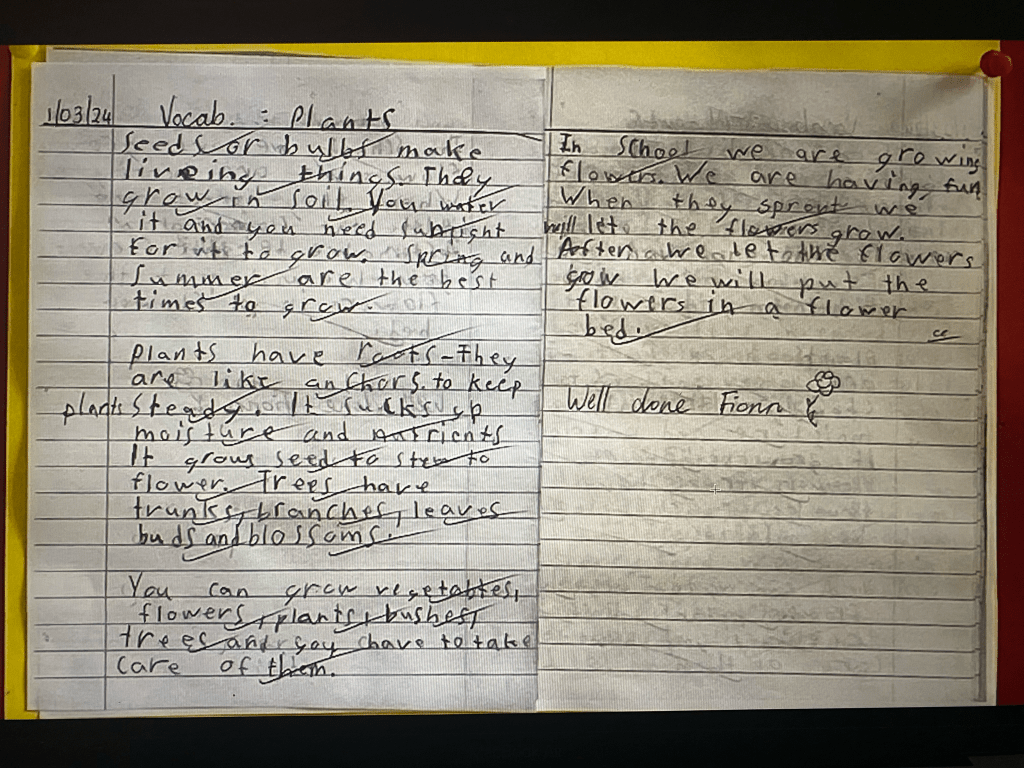 1/03/24 Vocab. : Plants
Seeds or bulbs make
liveing things. They
grow in soil. You water
it and you need sunlight
for it to grow. Spring and
Summer are the best
times to grow.
Plants have roots - They
are like anchors. to keep
plants steady. It sucks up
moisture and nutrients
It grows seed to stem to
flower. Trees have
trunks, branches, leaves
buds and blossoms.
You can grow vegetables,
flowers, plants, bushes,
trees and you have to take
care of them.
In school we are growing
flowers. We are having fun
When they sprout we
will let the flowers grow.
After we let the flowers
grow we will put the
flowers in a flower
bed.
Well done Fionn